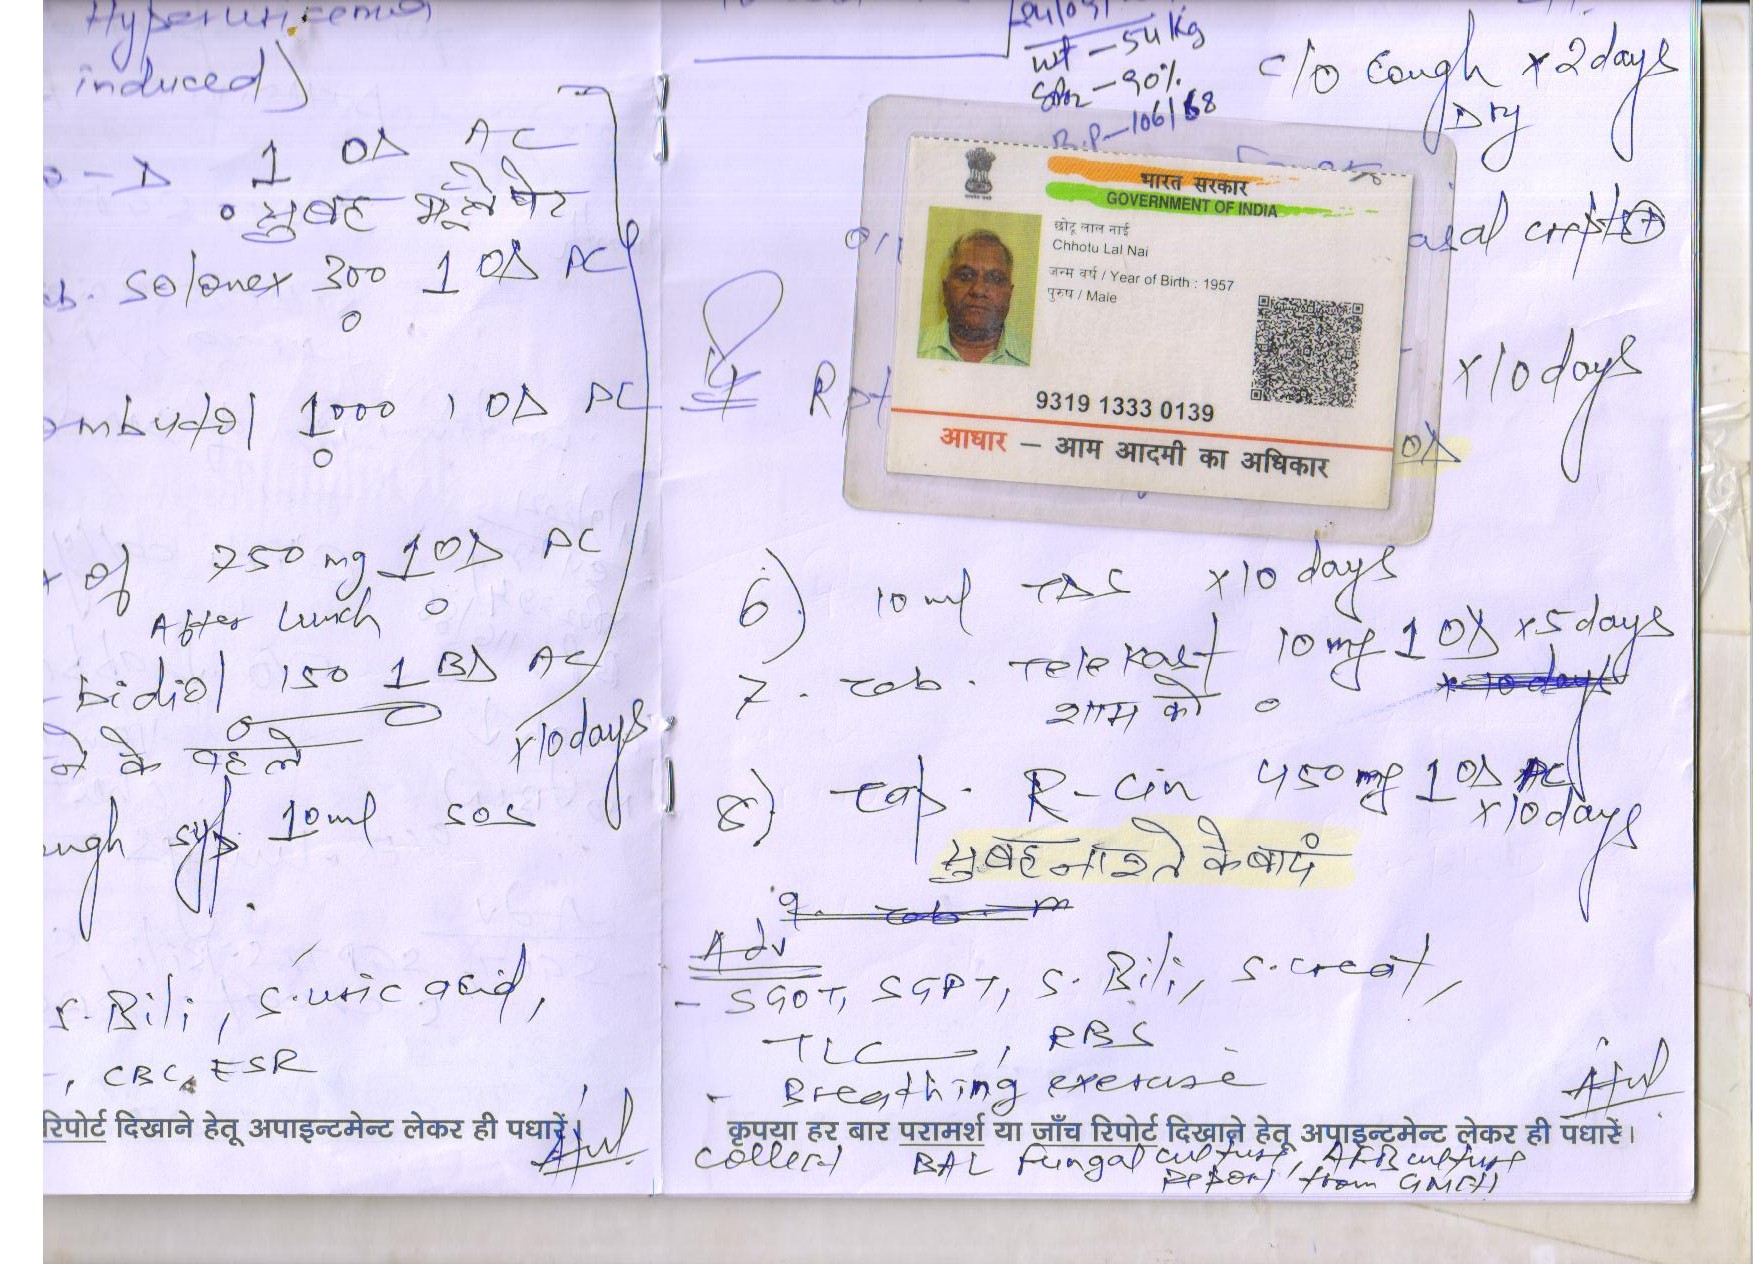 Hyperuricemia
induced)
- D 1 OD AC
सुबह भूखे पेट
Solonex 300 1 OD AC
1000 1 OD AC
of 750 mg 1 OD AC
After Lunch
150 1 BD AC
ने के पहले
x10 days
syp. 10ml SOS
S. Bili, S. uric acid,
, CBC, ESR
रिपोर्ट दिखाने हेतू अपाइन्टमेन्ट लेकर ही पधारें।
wt - 54 kg
SpO2 - 90%
B.P - 106/68
c/o Cough x 2 days
Dry
भारत सरकार
GOVERNMENT OF INDIA
छोटू लाल नाई
Chhotu Lal Nai
जन्म वर्ष / Year of Birth : 1957
पुरुष / Male
9319 1333 0139
आधार – आम आदमी का अधिकार
Rpt
x10 days
OD
6) 10 ml TDS x10 days
7. Tab. Telekast 10 mg 1 OD x5 days
शाम को
8) Cap. R-Cin 450 mg 1 OD AC
x10 days
सुबह नाश्ते के बाद
Adv
- SGOT, SGPT, S. Bili, S. creat,
TLC, RBS
- Breathing exercise
कृपया हर बार परामर्श या जाँच रिपोर्ट दिखाने हेतू अपाइन्टमेन्ट लेकर ही पधारें।
collect BAL Fungal culture, AFB culture
Report from GMCH